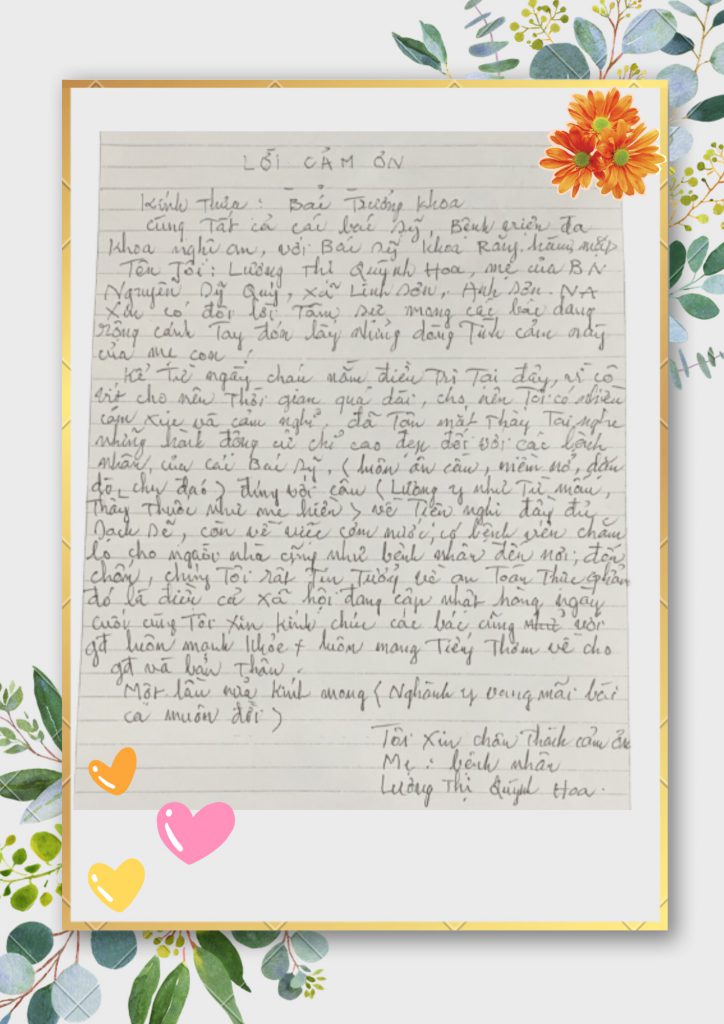 LỜI CẢM ƠN
Kính thưa : Bác Trưởng khoa
cùng Tất cả các bác sỹ, Bệnh viện đa
khoa nghệ an, với Bác sỹ khoa Răng, hàm, mặt
Tên Tôi : Lương Thị Quỳnh Hoa, mẹ của BN
Nguyễn Sỹ Quý, xã Lĩnh Sơn, Anh Sơn. NA
Xin có đôi lời Tâm sự mong các bác dang
rộng cánh Tay đón lấy những dòng Tình cảm này
của mẹ con !
Kể Từ ngày cháu nằm điều Trị Tại đây, vì cô
vít cho nên Thời gian quá dài, cho nên Tôi có nhiều
cảm xúc và cảm nghĩ, đã Tận mắt Thấy Tai nghe
những hành động cử chỉ cao đẹp đối với các bệnh
nhân, của các Bác sỹ, (luôn ân cần, niềm nở,
chu đáo) đúng với câu (Lương y như Từ mẫu,
Thầy Thuốc như mẹ hiền) về Tiện nghi đầy đủ
sạch sẽ, còn về việc cơm nước, có bệnh viện chăm
lo cho người nhà cũng như bệnh nhân đến nơi, đến
chốn, chúng Tôi rất Tin Tưởng về an Toàn Thực phẩm
đó là điều cả xã hội đang cập nhật hàng ngày
cuối cùng Tôi Xin kính chúc các bác cùng với
gđ luôn mạnh khỏe + luôn mang Tiếng Thơm về cho
gđ và bản Thân.
Một lần nữa kính mong (Nghành y vang mãi bài
ca muôn đời)
Tôi Xin chân Thành cảm ơn
Mẹ : bệnh nhân
Lương Thị Quỳnh Hoa.